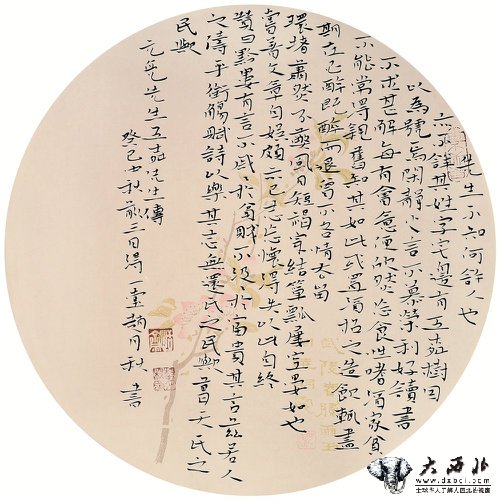 先生不知何許人也
亦不詳其姓字宅邊有五柳樹因
以為號焉閑靜少言不慕榮利好讀書
不求甚解每有會意便欣然忘食性嗜酒家貧
不能常得親舊知其如此或置酒招之造飲輒盡
期在必醉既醉而退曾不吝情去留
環堵蕭然不蔽風日短褐穿結簞瓢屢空晏如也
嘗著文章自娛頗示己志忘懷得失以此自終
贊曰黔婁有言不戚於貧賤不汲於富貴其言茲若人
之儔乎銜觴賦詩以樂其志無懷氏之民歟葛天氏之
民歟
元亮先生五柳先生傳
癸巳中秋前三日得一堂趙月秋書
大西北